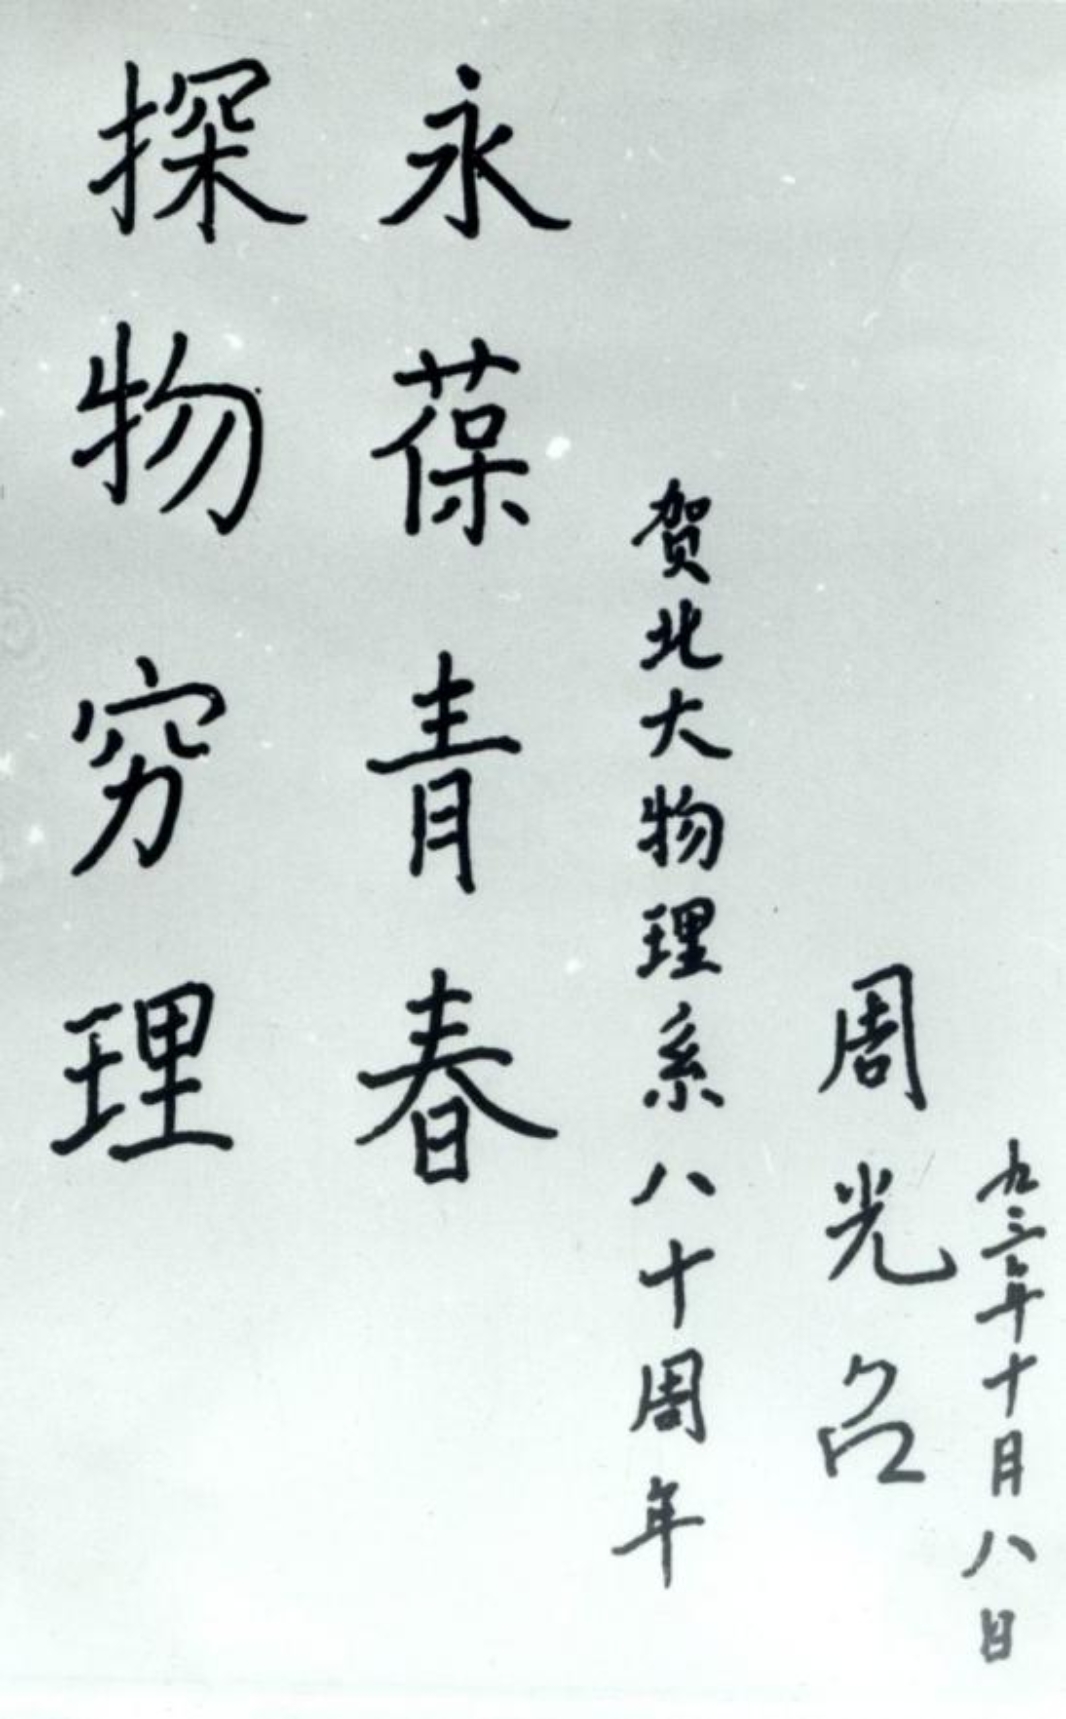 探物穷理
永葆青春
贺北大物理系八十周年
周光召
九三年十月八日